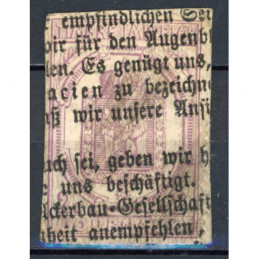 empfindlichen Sei
ir für den Augenb
len. Es genügt uns,
acien zu bezeichn
ß wir unsere Ansi
uch sei, geben wir h
uns beschäftigt.
ckerbau-Gesellschaft
heit anempfehlen,